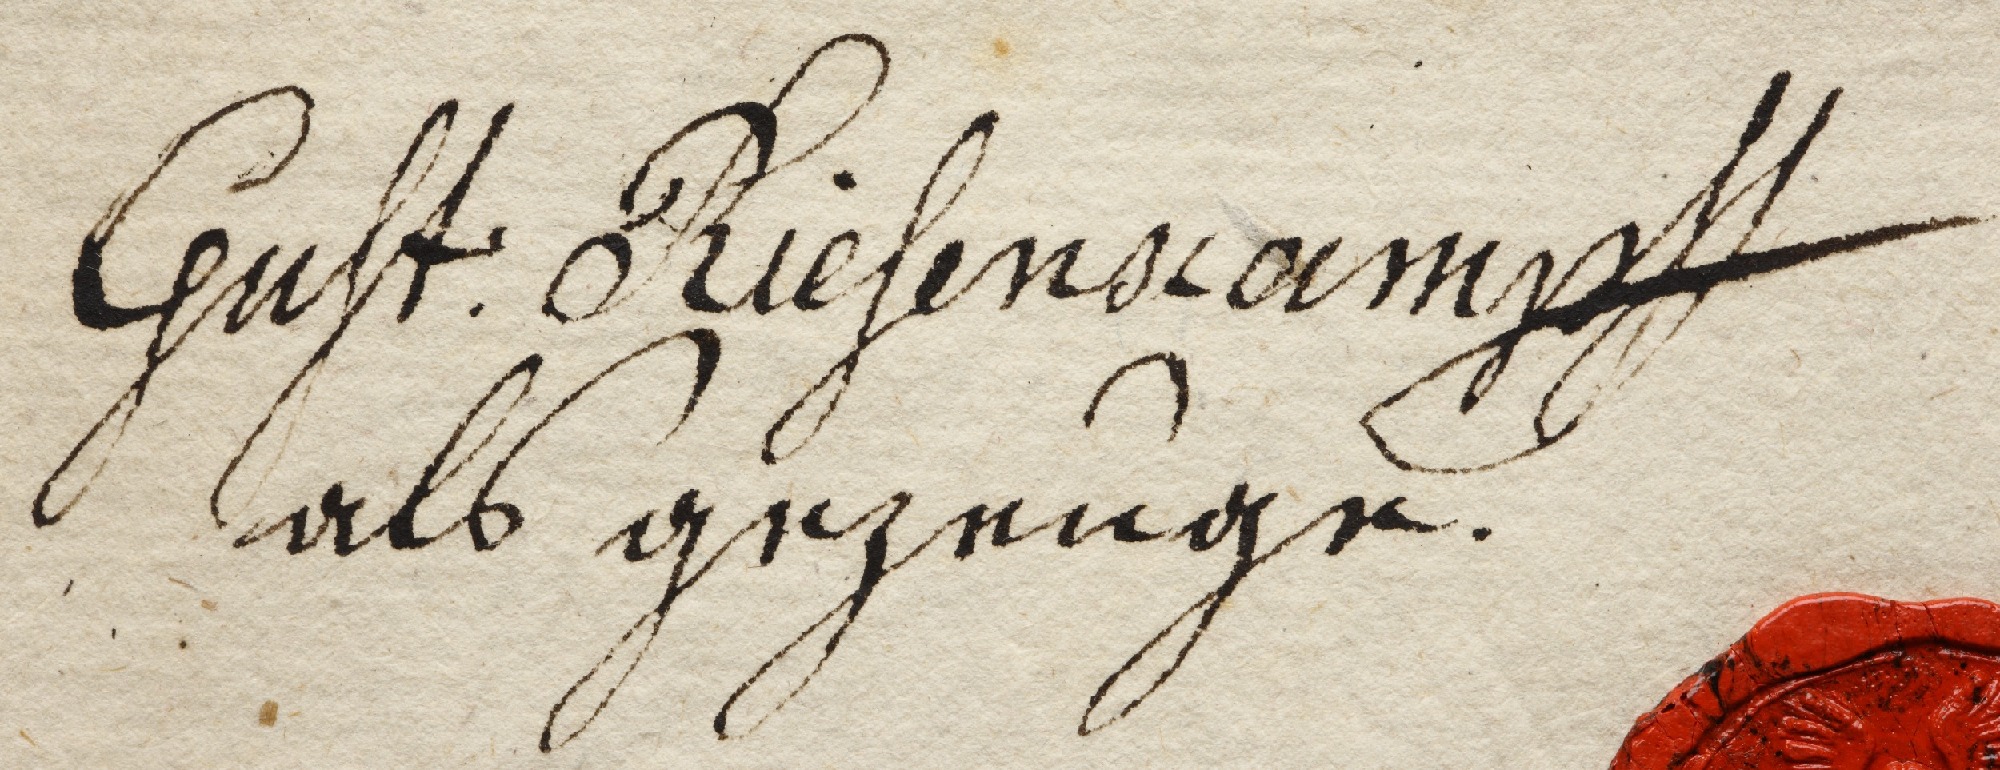 Gust. Riesenkampff
als gezeuge.